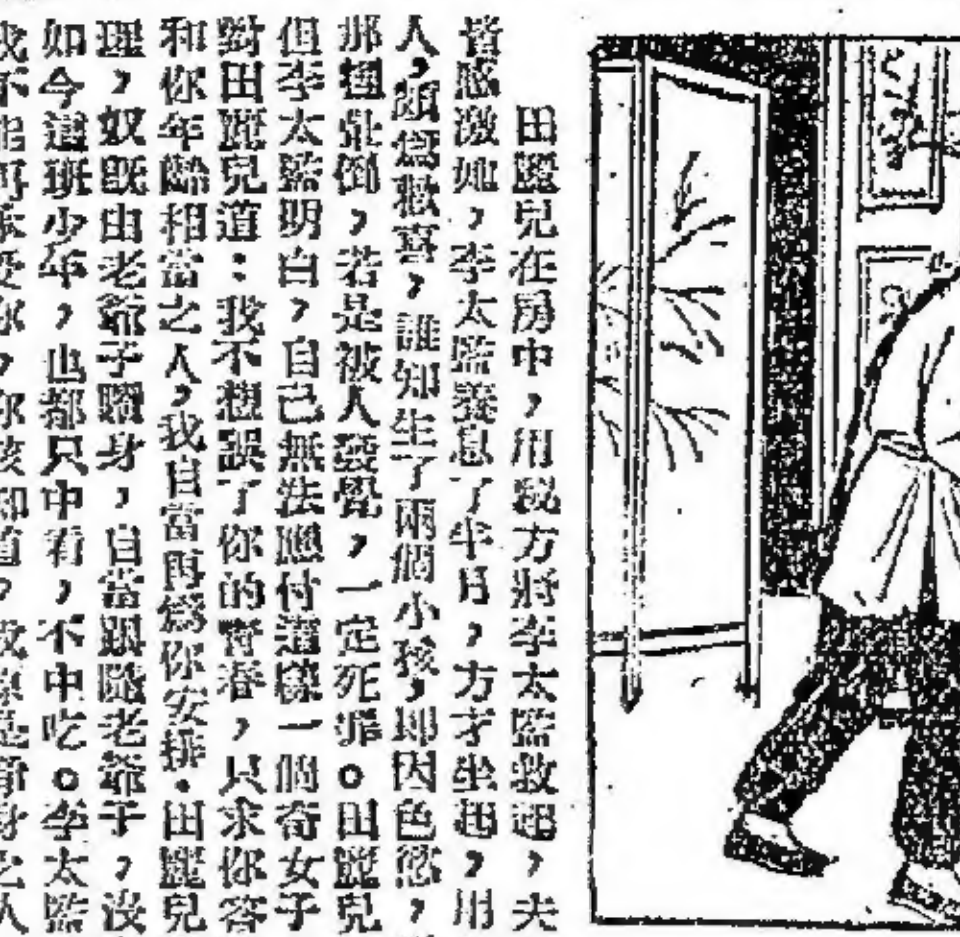 田麗兒在房中，用秘方將李太監救起，夫
皆感激她，李太監養息了半月，方才坐起，用
人，頗爲歡喜，誰知生了兩個小孩，即因色慾，
那裡鼎倒，若是被人發覺，一定死罪。田麗兒
但李太監明白，自己無法應付這樣一個奇女子
對田麗兒道：我不想誤了你的青春，只求你答
和你年齡相當之人，我自當再爲你安排。田麗兒
理，奴既由老爺子贖身，自當跟隨老爺子，沒
如今這班少年，也都只中看，不中吃。李太監
我不能再承受你，你該知道，我原是凈身之人